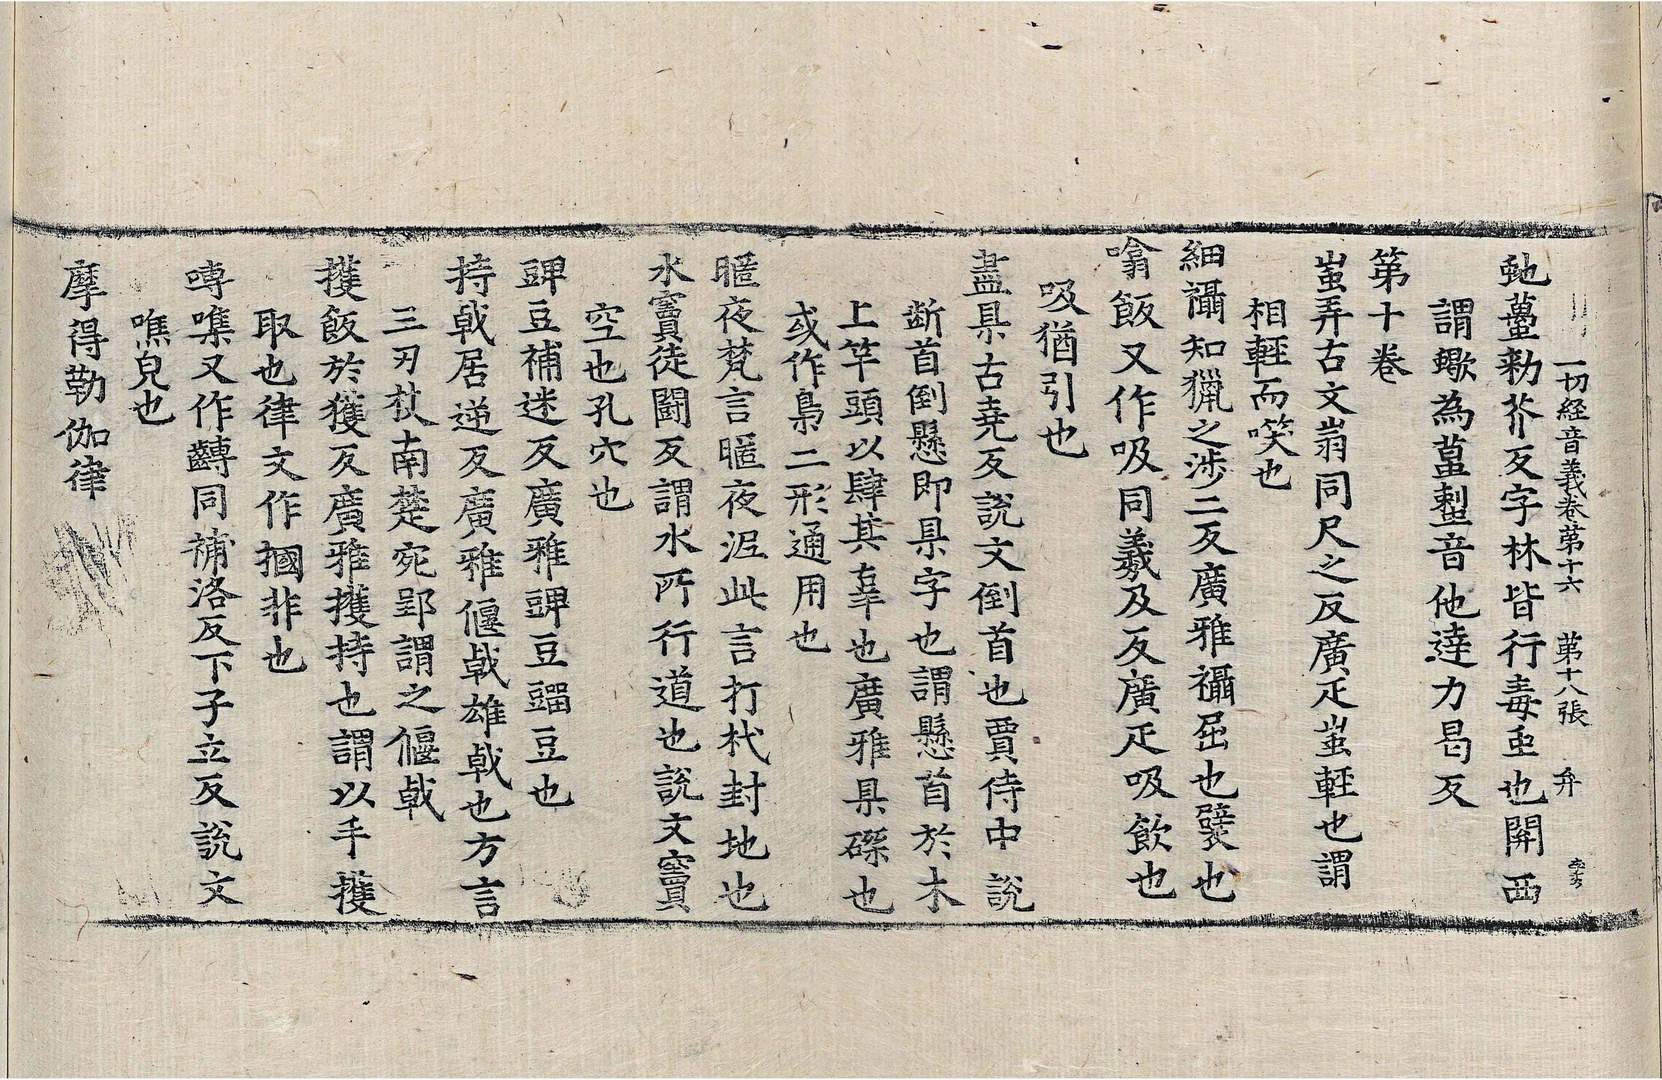 一切経音義卷第十六 第十八張 弁
虵蠆勑芥反字林皆行毒䖝也關西
謂蠍為蠆𧍷音他達力曷反
第十卷
蚩弄古文㞴同尺之反廣疋蚩軽也謂
相軽而㗛也
細𧜗知獵之涉二反廣雅襵屈也襞也
噏飯又作吸同羲及反廣疋吸飲也
吸猶引也
蠱㬎古尭反說文倒首也賈侍中說
断首倒懸即㬎字也謂懸首於木
上竿頭以肆其辜也廣雅㬎磔也
或作梟二形通用也
暱夜梵言暱夜泜此言打杙封地也
水竇徒鬪反謂水所行道也說文竇
空也孔穴也
豍豆補迷反廣雅豍豆䝁豆也
持戟居逆反廣雅偃戟雄戟也方言
三刃杖南楚宛郢謂之偃戟
擭飯於獲反廣雅擭持也謂以手擭
取也律文作摑非也
嗶噍又作齱同補洛反下子立反說文
噍皃也
摩得勒伽律